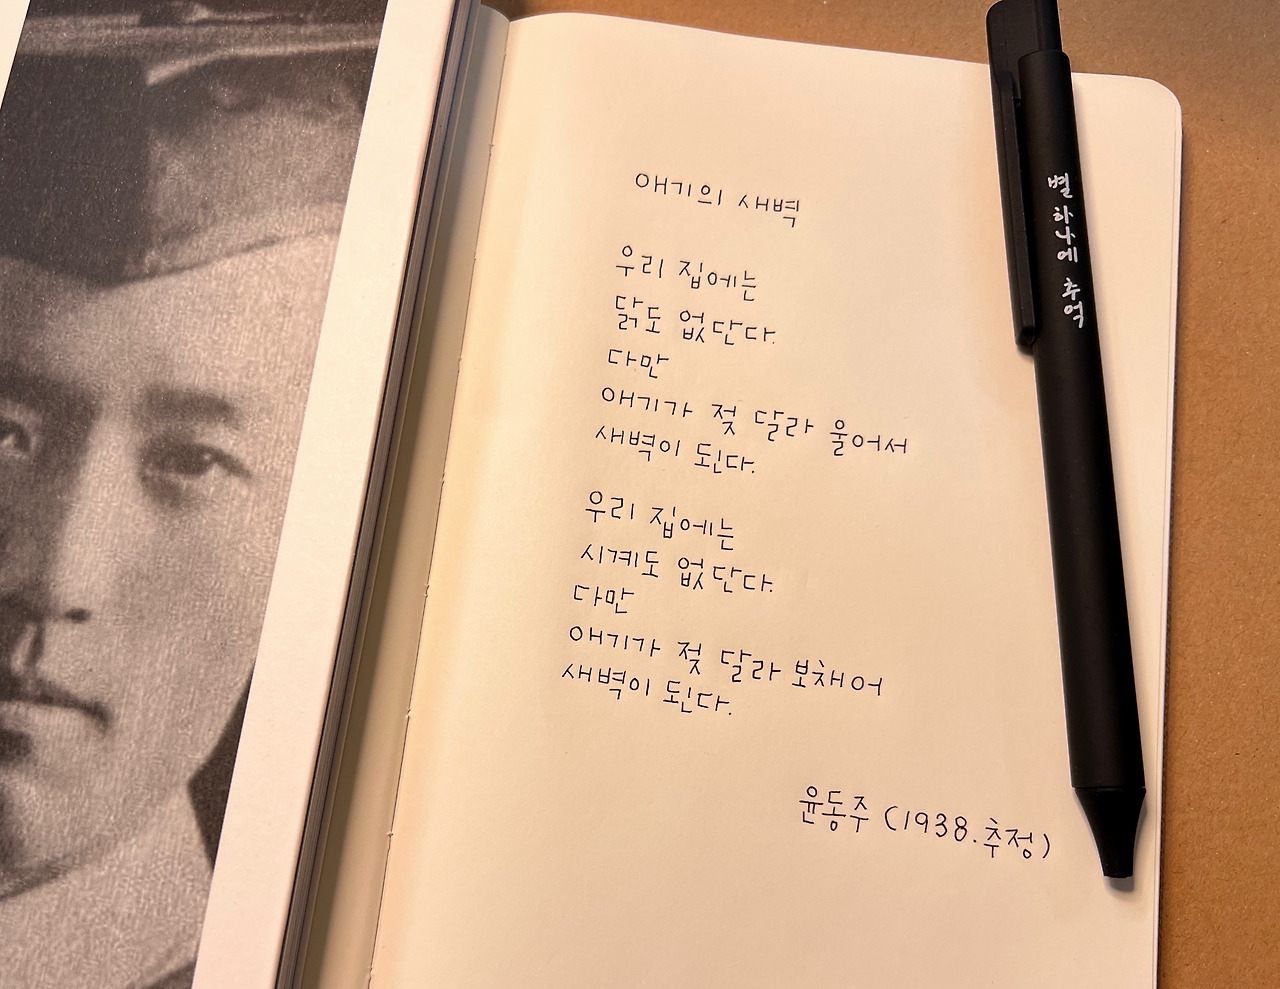 애기의 새벽
우리 집에는
닭도 없단다.
다만
애기가 젖 달라 울어서
새벽이 된다.
우리 집에는
시계도 없단다.
다만
애기가 젖 달라 보채어
새벽이 된다.
윤동주 (1938.추정)
별 하나에 추억